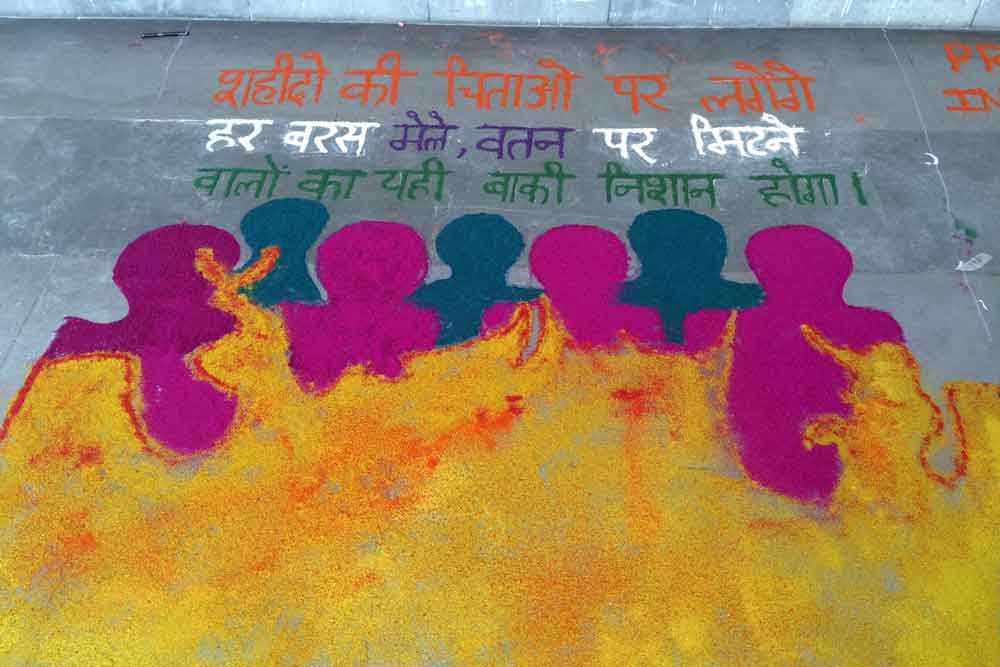 शहीदो की चिताओ पर लगेंगे
हर बरस मेले, वतन पर मिटने
वालों का यही बाकी निशान होगा।